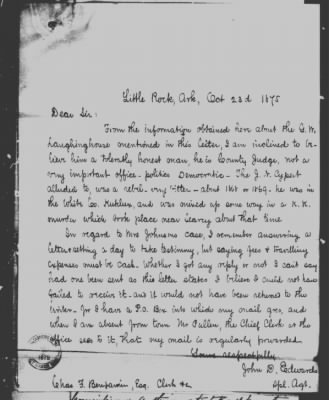 Little Rock, Ark, Oct 23d 1875
Dear Sir:
From the information obtained here about the G. W.
Laughinghouse mentioned in this letter, I am inclined to be-
lieve him a tolerably honest man, he is County Judge, not a
very important office - politics Democratic - The J. N. Cypert
alluded to, was a rebel - very bitter - about 1868 or 1869. he was in
the White Co. Kuklux, and was mixed up some way in a K. K.
murder which took place near Searcy about that time
In regard to Mrs Johnsons case, I remember answering a
letter setting a day to take testimony, but saying fees & travelling
expenses must be Cash. Whether I got any reply or not I cant say
had one been sent as this letter states I believe I could not have
failed to receive it - and it would not have been returned to the
writer - for I have a P.O. Box into which my mail goes, and
when I am absent from town Mr Pullen, the Chief Clerk at the
office sees to it, that my mail is regularly forwarded
Yours respectfully
John D. Edwards
Spl. Agt.
Chas F. Benjamin, Esq. Clerk &c